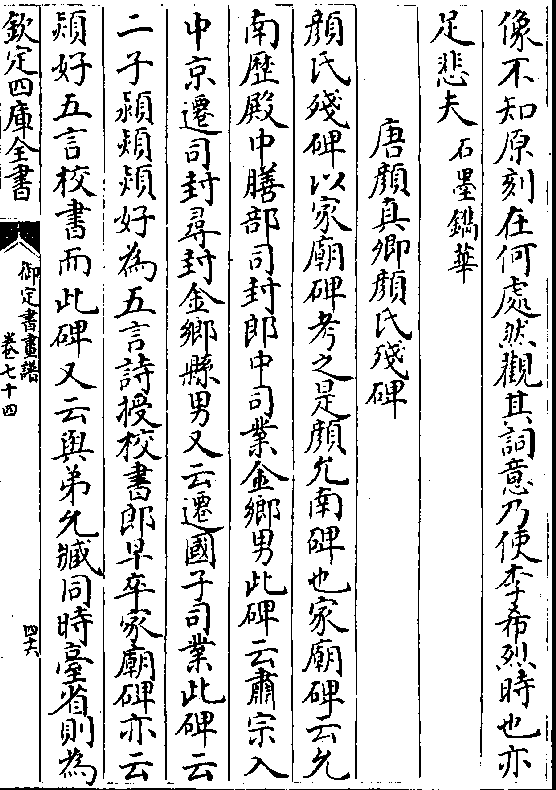 像不知原刻在何處然觀其詞意乃使李希烈時也亦
足悲夫石墨鐫華
唐顔真卿顔氏殘碑
顔氏殘碑以家廟碑考之是顔允南碑也家廟碑云允
南歴殿中膳部司封郎中司業金鄉男此碑云肅宗入
中京遷司封尋封金鄉縣男又云遷國子司業此碑云
二子熲頍頍好為五言詩授校書郎早卒家廟碑亦云
頍好五言校書而此碑又云與弟允臧同時臺省則為
欽定四庫全書
御定書畫譜
卷七十四
四六